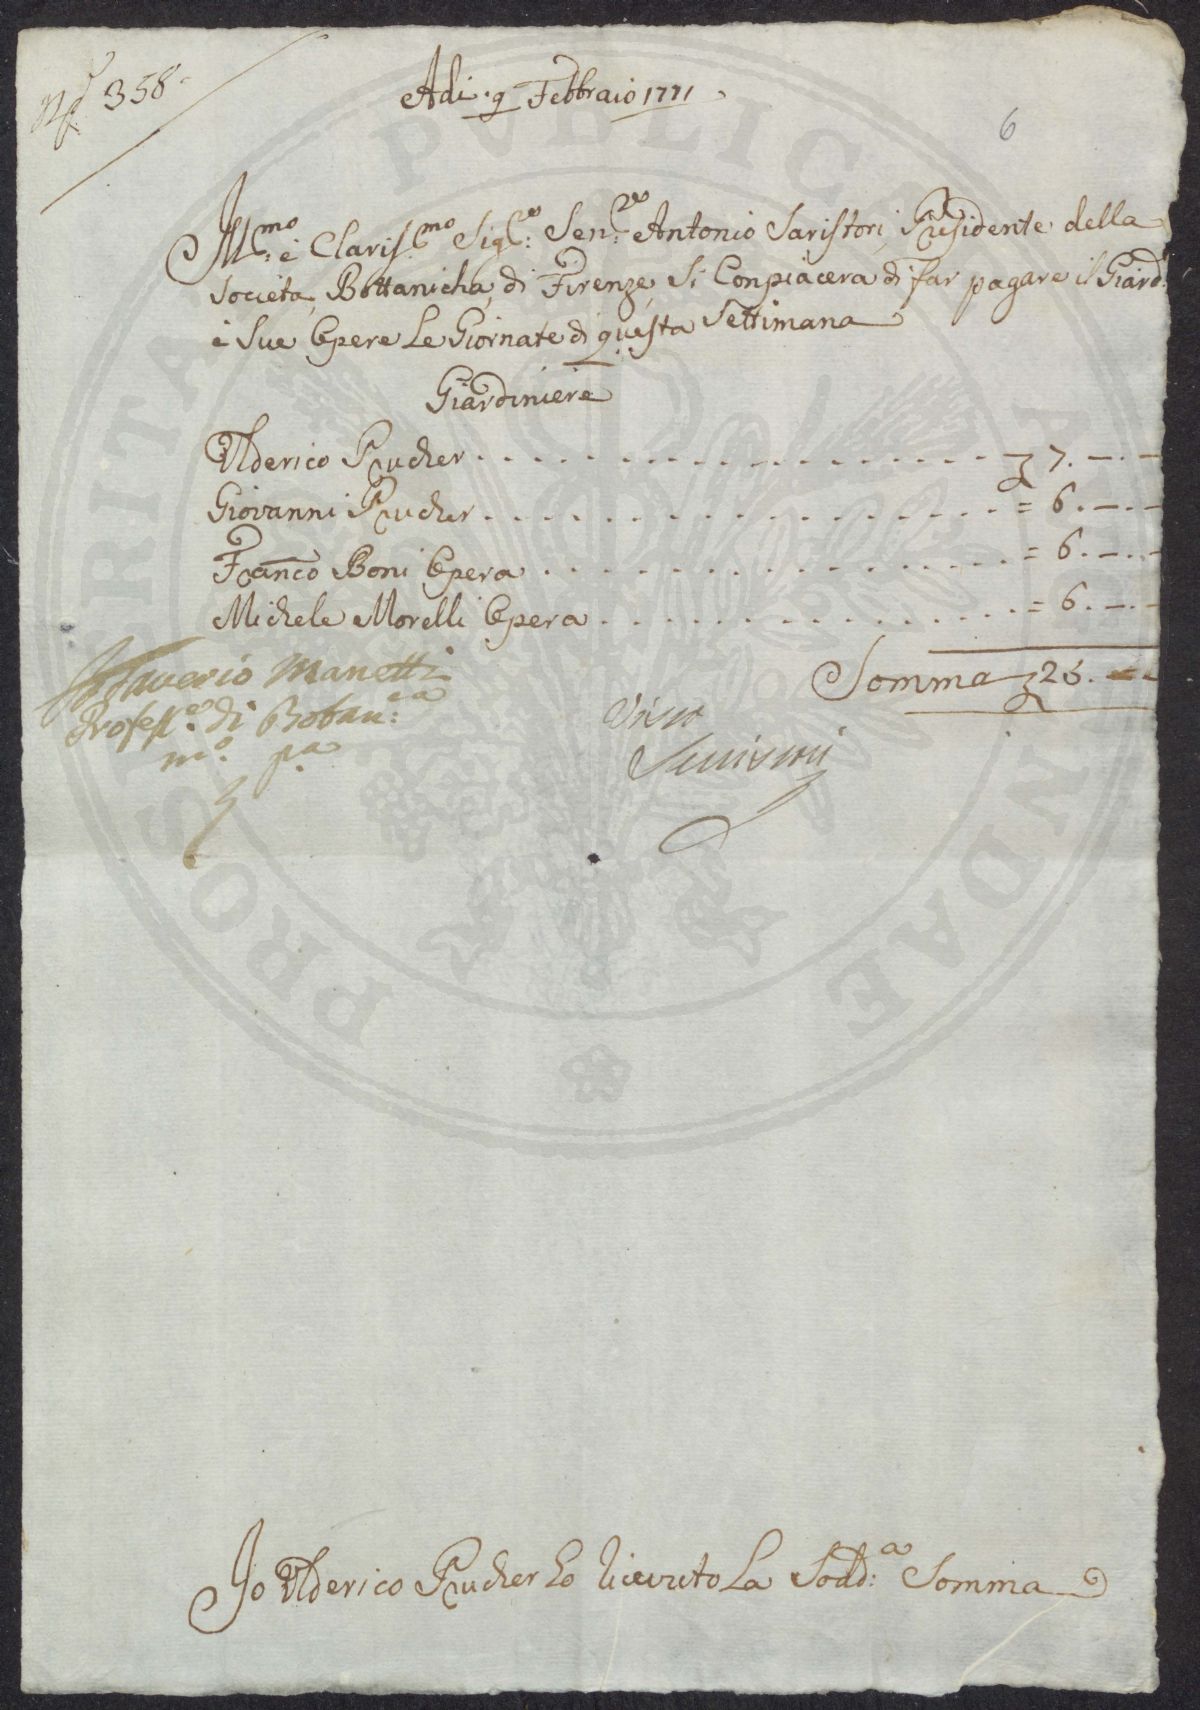 N.º 358
Adi. 9 Febbraio 1771
6
Ill.mo e Claris.mo Sig.re Sen.re Antonio Saristori, Presidente della
Societa, Bottanicha, di Firenze, Si Conpiacera di far pagare il Giard.
e Sue Opere Le Giornate di questa Settimana
Giardiniere
Ulderico Prucher . . . . . . . . . . . . . . . . . . . 7. —. —
Giovanni Prucher . . . . . . . . . . . . . . . . . . . = 6. —. —
Fran.co Boni Opera . . . . . . . . . . . . . . . . . = 6. —. —
Michele Morelli Opera . . . . . . . . . . . . . . . = 6. —. —
Somma 25. — —
Saverio Manetti
Profess.e di Botan.ca
m.o p.a
Visto
Io Ulderico Prucher ho riceuto La Sodd.a Somma
PROSPERITATI PVBLICAE AVGENDAE